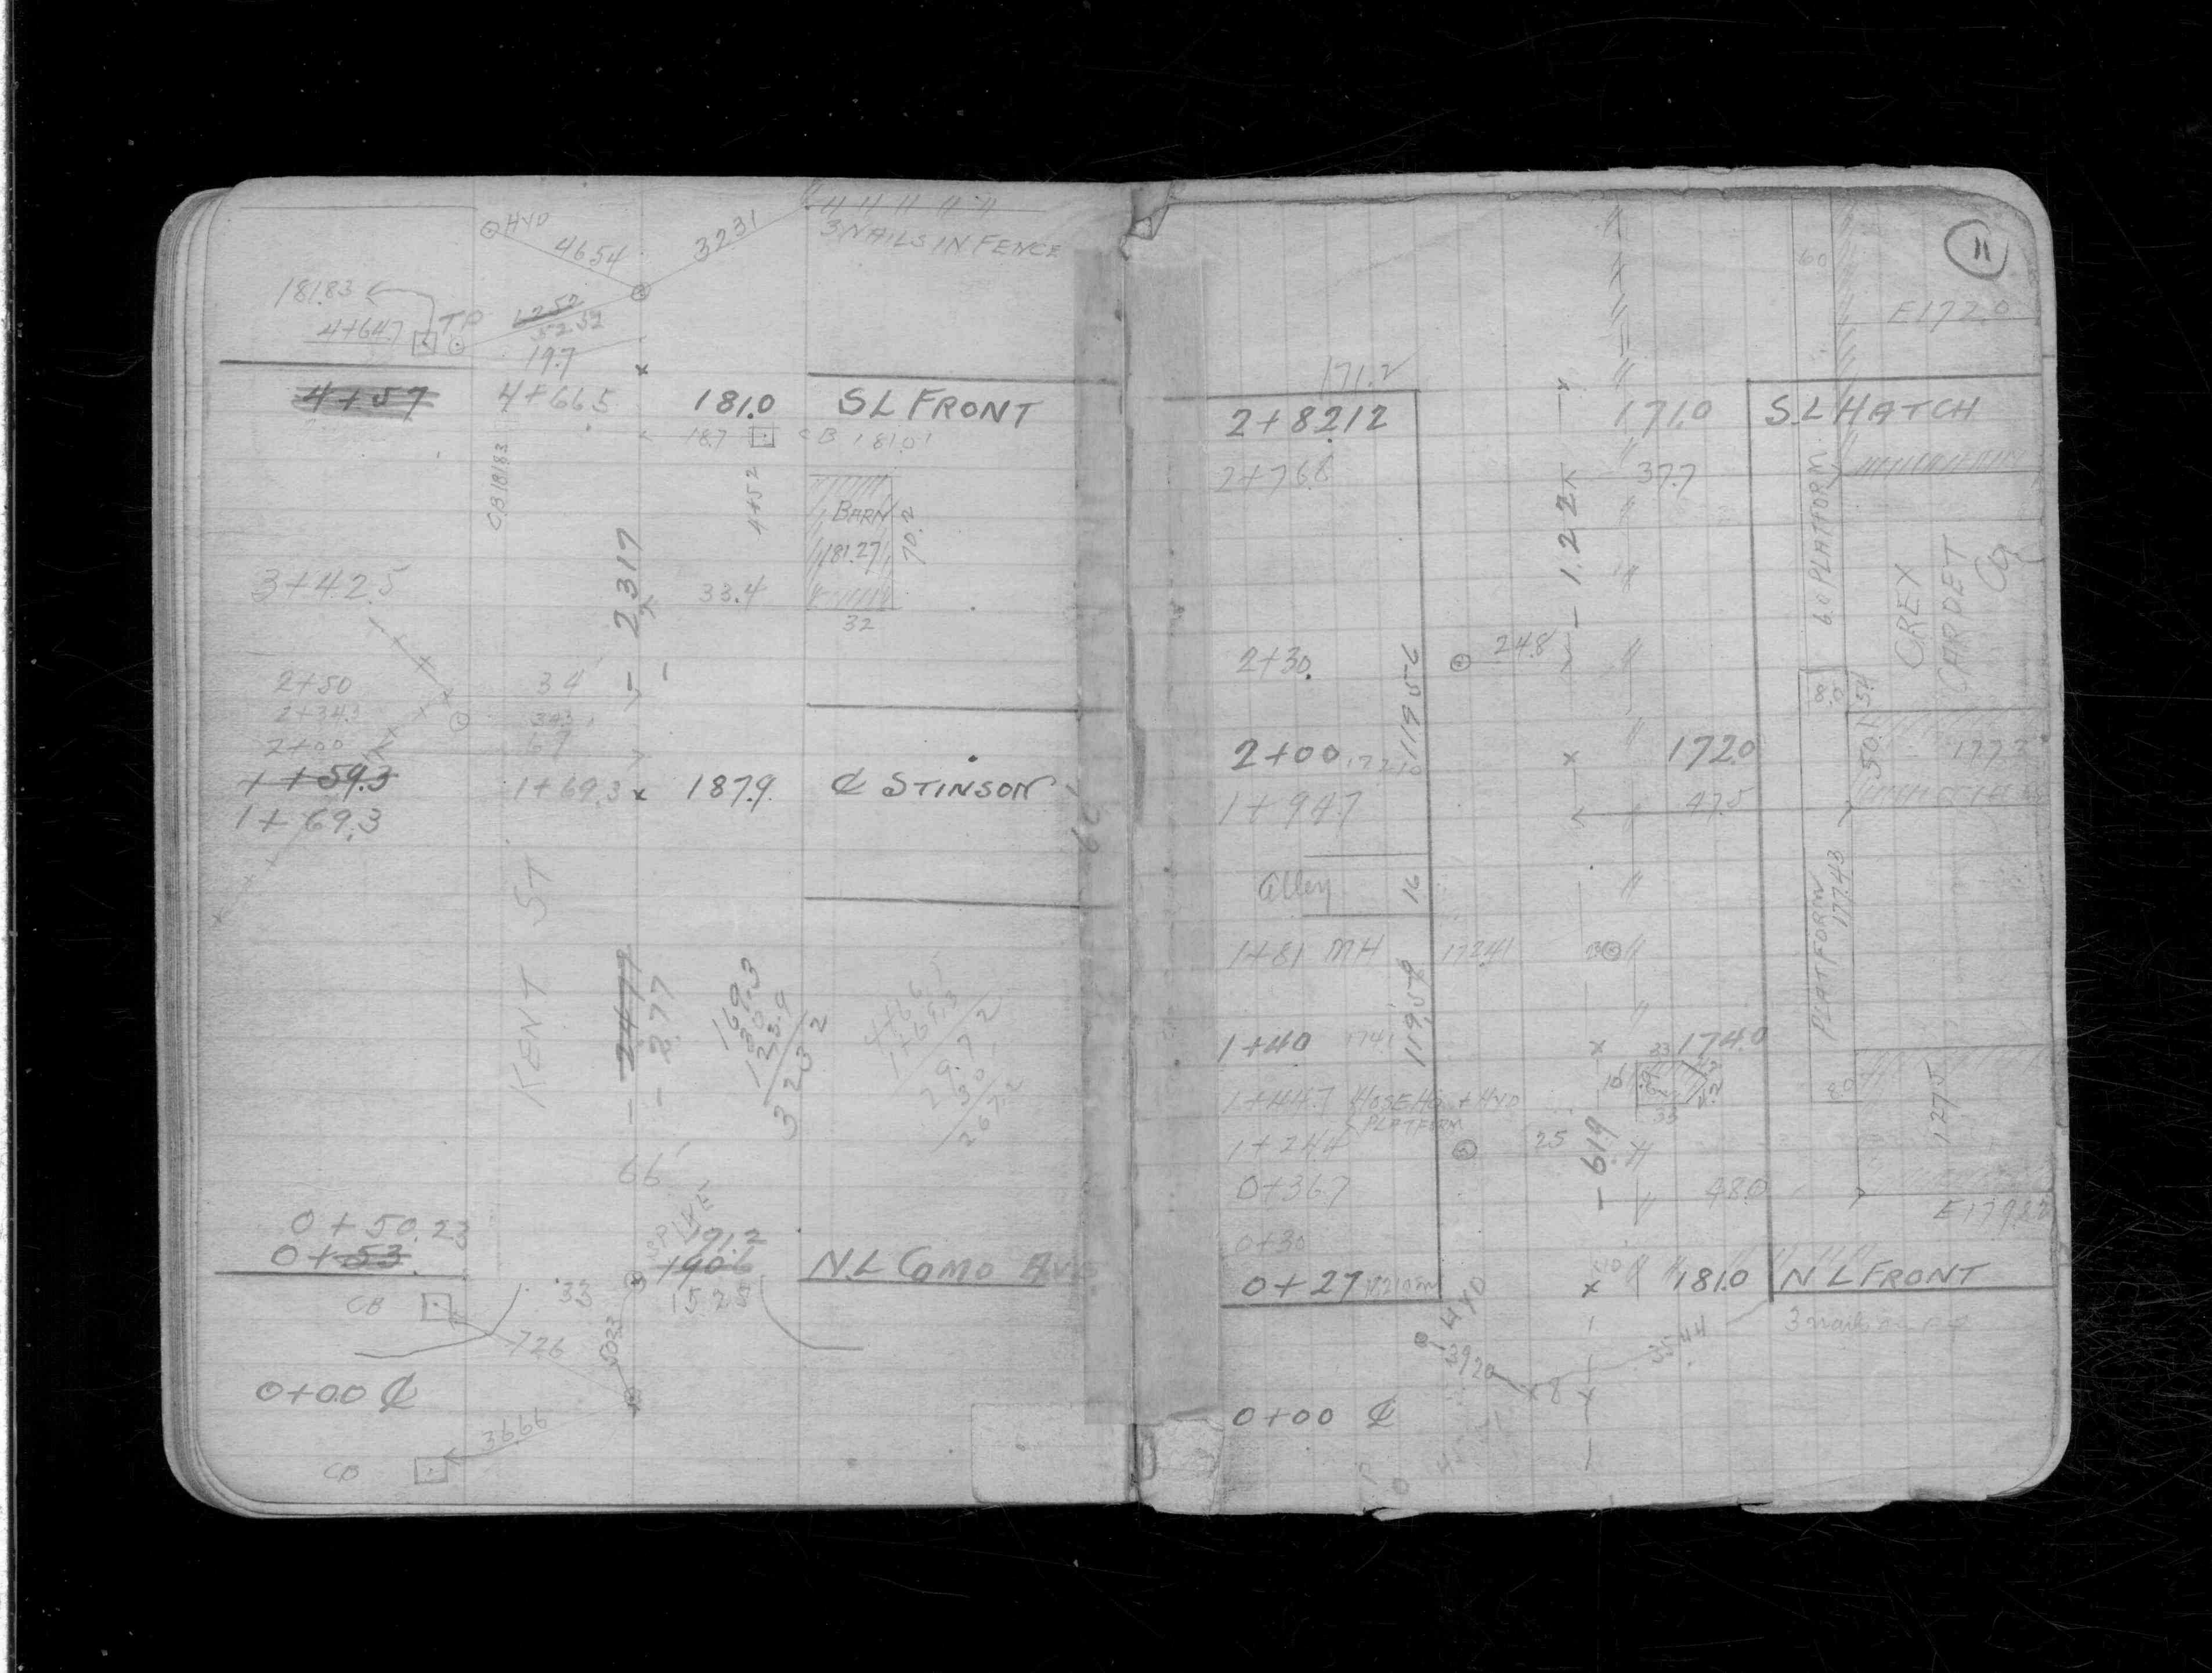 HYD
4654
3231
3 NAILS IN FENCE
181.83
4+64.7
TP
6252
52.52
19.7
4+57
4+66.5
181.0
SL FRONT
18.7
CB 181.01
CB 181.83
4+52
BARN
181.27
70.2
32
- 2.317
3+42.5
33.4
2+50
34
2+34.3
2+00
67
1+59.3
1+69.3
187.9
₵ STINSON
1+69.3
66
KENT ST
- 2.477
- 2.77
169.3
30.
123.9
323 2
4+66.5
1+69.3
29.7 2
30.
267.2
66'
SPIKE
0+50.23
0+53
191.2
190.6
N.L COMO AVE
15 2.5
33
CB
726
5023
0+00 ₵
3666
CB
11
60
E172.0
171.2
2+82.12
171.0
S.L HATCH
2+76.8
37.7
- 1.22
6.0 PLATFORM
CREX
CARPET
CO
2+30
24.8
119.56
8.0
54
50.1
2+00
172.0
177.3
1+94.7
47.5
Alley
16
PLATFORM
177.43
1+81 MH
172.41
119.59
1+40
174.1
174.0
33
16
35
1+44.7 HOSE HO. + HYD
PLATFORM
1+24.4
25
- 6.19
8.0
127.5
0+36.7
48.0
0+30
0+27
181.0
N L FRONT
HYD
3920
3544
3 nails in
0+00 ₵